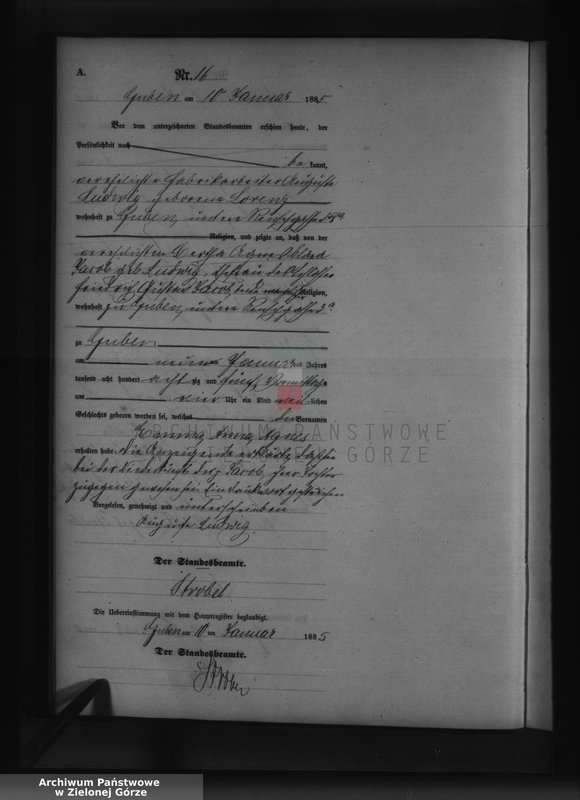 A.
Nr. 16
Guben am 10ten Januar 1885
Vor dem unterzeichneten Standesbeamten erschien heute, der
Persönlichkeit nach
be kannt,
verehelichte Fabrikarbeiter Auguste
Ludwig geborene Lorenz
wohnhaft zu Guben, untere
Religion, und zeigte an, daß von der
verehelichten Bertha Agnes
Jacob geb. Ludwig, Ehefrau des
Friedrich Gustav Jacob, Religion,
wohnhaft zu Guben, untere
zu Guben
am neun ten Januar des Jahres
tausend acht hundert acht zig und fünf, Vormittags
um vier Uhr ein Kind weib lichen
Geschlechts geboren worden sei, welches die Vornamen
Emma Anna Agnes
erhalten habe. Die Anzeigende erklärte, daß sie
bei der Niederkunft der p. Jacob, ihrer Tochter
zugegen gewesen sei. Ein Druckwort gestrichen
Vorgelesen, genehmigt und unterschrieben
Auguste Ludwig
Der Standesbeamte.
Strobel
Die Uebereinstimmung mit dem Hauptregister beglaubigt.
Guben am 10ten Januar 1885
Der Standesbeamte.
Strobel
ARCHIWUM PAŃSTWOWE
W ZIELONEJ GÓRZE
Archiwum Państwowe
w Zielonej Górze